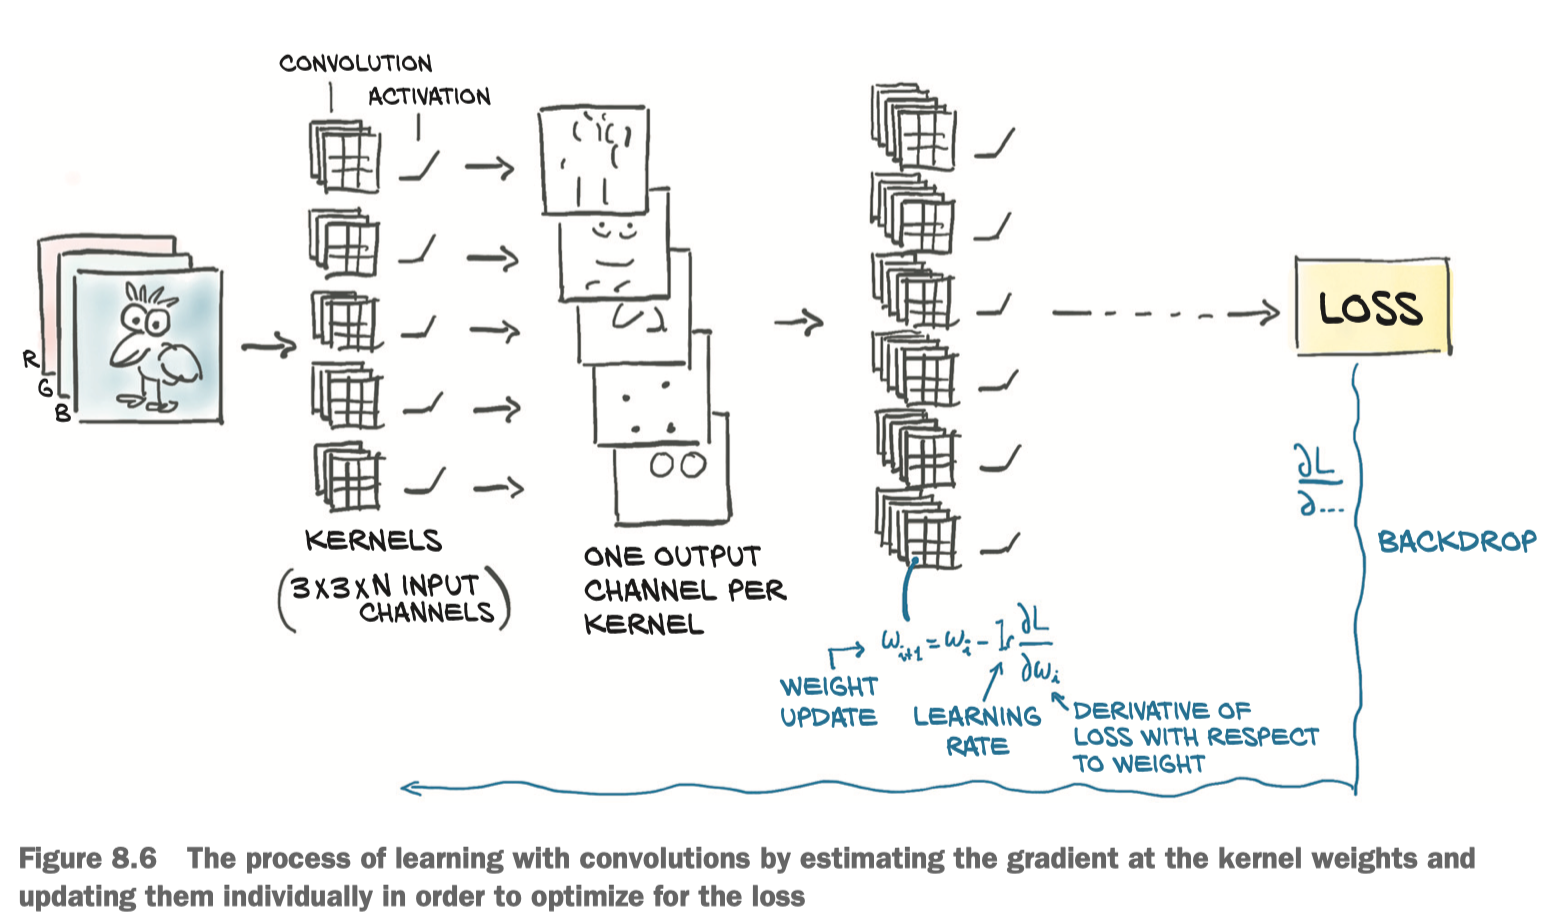 CONVOLUTION
ACTIVATION
R
G
B
KERNELS
(3X3XN INPUT
CHANNELS)
ONE OUTPUT
CHANNEL PER
KERNEL
LOSS
∂L
∂...
BACKDROP
ω_{i+1} = ω_i - lr ∂L/∂ω_i
WEIGHT
UPDATE
LEARNING
RATE
DERIVATIVE OF
LOSS WITH RESPECT
TO WEIGHT
Figure 8.6 The process of learning with convolutions by estimating the gradient at the kernel weights and
updating them individually in order to optimize for the loss